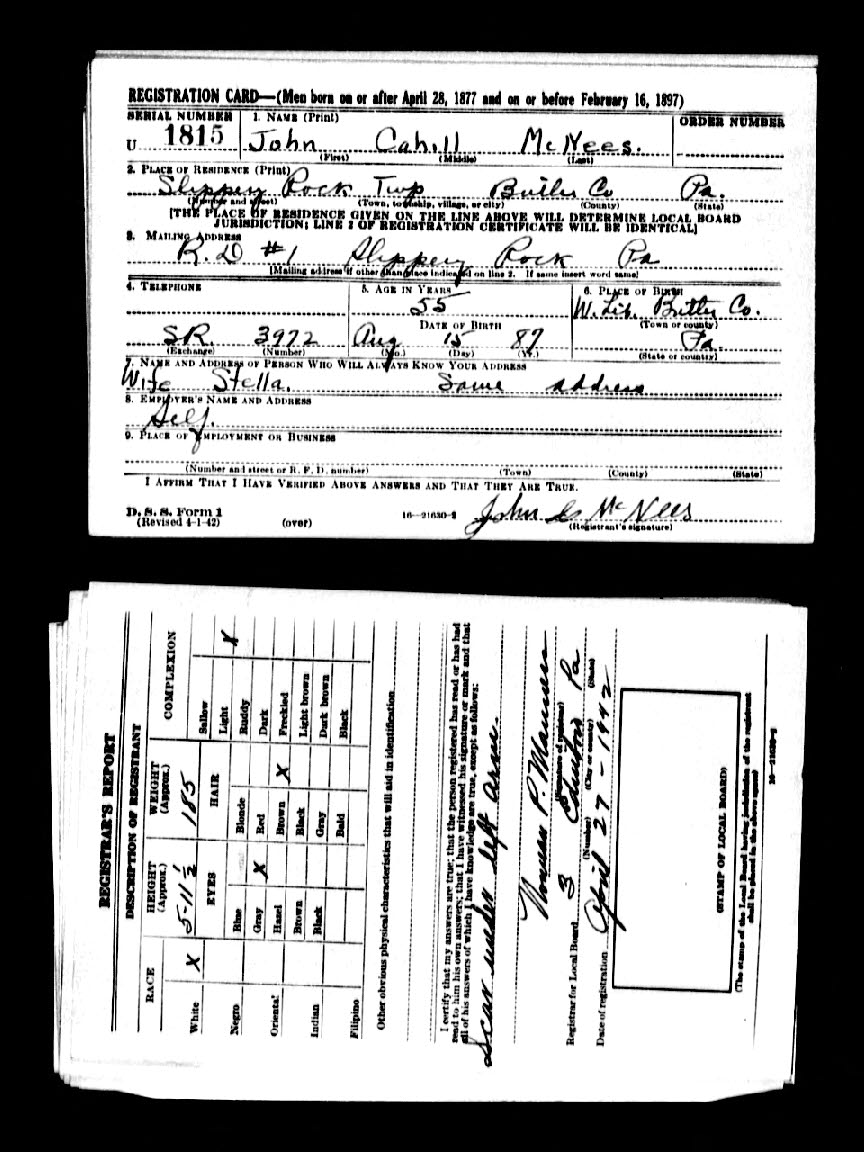 REGISTRATION CARD—(Men born on or after April 28, 1877 and on or before February 16, 1897)
SERIAL NUMBER 1. NAME (Print) ORDER NUMBER
U 1815 John Cahill McNees.
(First) (Middle) (Last)
2. PLACE OF RESIDENCE (Print)
Slippery Rock Twp Butler Co Pa.
(Number and street) (Town, township, village, or city) (County) (State)
[THE PLACE OF RESIDENCE GIVEN ON THE LINE ABOVE WILL DETERMINE LOCAL BOARD
JURISDICTION; LINE 2 OF REGISTRATION CERTIFICATE WILL BE IDENTICAL]
3. MAILING ADDRESS
R.D #1 Slippery Rock Pa
[Mailing address if other than place indicated on line 2. If same insert word same]
4. TELEPHONE 5. AGE IN YEARS 6. PLACE OF BIRTH
55 W. Lib. Butler Co.
DATE OF BIRTH (Town or county)
SR. 3972 Aug 15 87 Pa.
(Exchange) (Number) (Mo.) (Day) (Yr.) (State or country)
7. NAME AND ADDRESS OF PERSON WHO WILL ALWAYS KNOW YOUR ADDRESS
Wife Stella. Same address
8. EMPLOYER'S NAME AND ADDRESS
Self.
9. PLACE OF EMPLOYMENT OR BUSINESS
(Number and street or R. F. D. number) (Town) (County) (State)
I AFFIRM THAT I HAVE VERIFIED ABOVE ANSWERS AND THAT THEY ARE TRUE.
D. S. S. Form 1
(Revised 4-1-42) (over) 16—21630-2 John C McNees
(Registrant's signature)
REGISTRAR'S REPORT
DESCRIPTION OF REGISTRANT
RACE HEIGHT (Approx.) WEIGHT (Approx.) COMPLEXION
5-11 1/2 185
EYES HAIR
White X Sallow
Blue Blonde Light X
Negro Gray X Red Ruddy
Oriental Hazel Brown X Dark
Brown Black Freckled
Indian Black Gray Light brown
Bald Dark brown
Filipino Black
Other obvious physical characteristics that will aid in identification
I certify that my answers are true; that the person registered has read or has had
read to him his own answers; that I have witnessed his signature or mark and that
all of his answers of which I have knowledge are true, except as follows:
Scar under left arm.
P.
(Signature of registrar)
Registrar for Local Board 3 Pa
(Number) (City or county) (State)
Date of registration April 27 - 1942
(STAMP OF LOCAL BOARD)
(The stamp of the Local Board having jurisdiction of the registrant
shall be placed in the above space)
16—21630-2